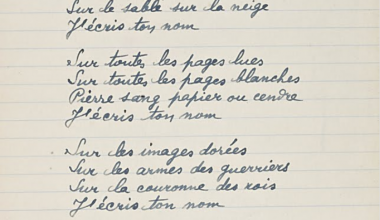 Sur le sable sur la neige
J'écris ton nom
Sur toutes les pages lues
Sur toutes les pages blanches
Pierre sang papier ou cendre
J'écris ton nom
Sur les images dorées
Sur les armes des guerriers
Sur la couronne des rois
J'écris ton nom